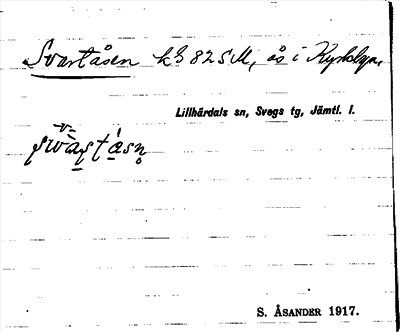 Svartåsen kB 82 SM, ås i Kyrkbyn.
Lillhärdals sn, Svegs tg, Jämtl. l.
S. ÅSANDER 1917.